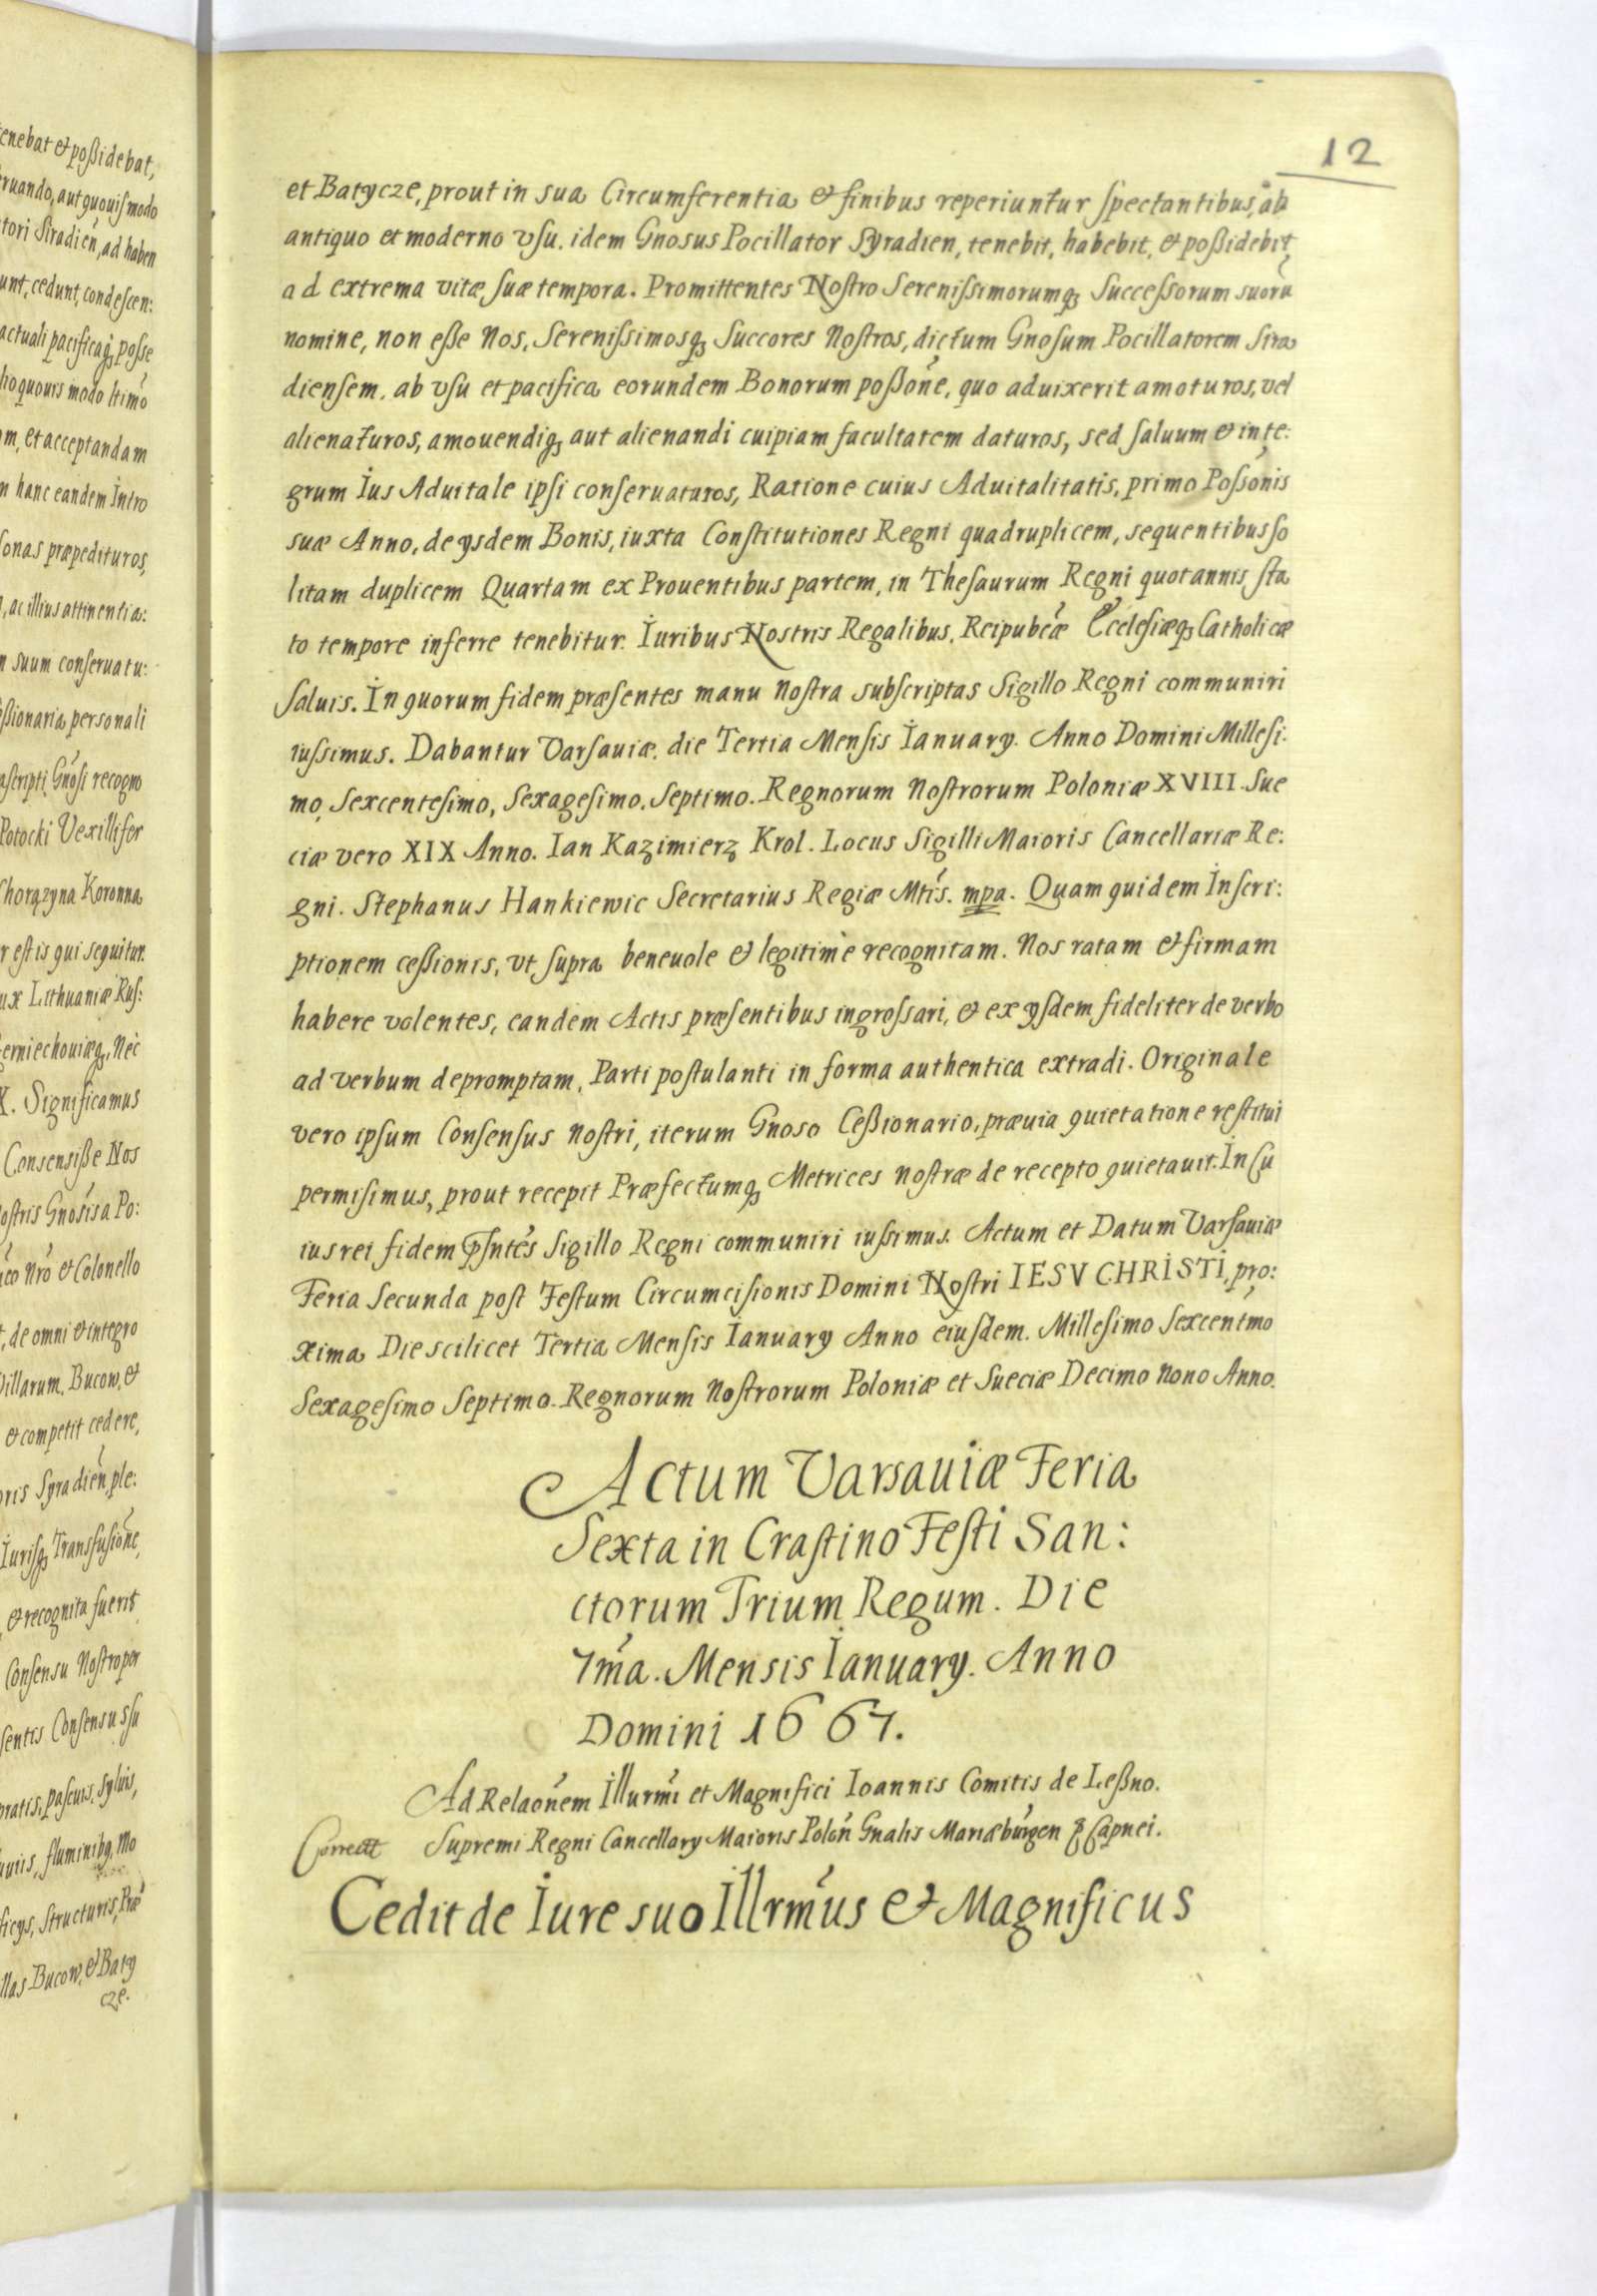 enebat et poßidebat,
ruando, aut quouis modo
tori Siradien̄, ad haben
unt, cedunt, condescen:
actuali pacificaq; poſſe
m, et acceptandam
hanc eandem Intro
ſonas præpedituros,
, ac illius attinentia:
suum conſeruatu:
eßionaria, personali
aſcripti Gnōsi recogno
Potocki Vexillifer
Chorązyna Koronna
r eſt is qui sequitur.
ux Lithuaniæ Ruſ:
zerniechouiæq; Nec
X. Significamus
Consensiße Nos
oſtris Gnōsis a Po:
Nrō et Colonello
, de omni et integro
Villarum, Bucow, et
et competit cedere,
oris Syradien̄, ple:
Iurisq; Transfusiōne,
et recognita fuerit
Conſensu Noſtro per
ſentis Conſensus ſu
pratis, paſcuis, syluis,
fluminibq, Mo
ficys, Structuris, Præ
llas Bucow, et Baty
cze.
12
et Batycze, prout in sua Circumferentia et finibus reperiuntur ſpectantibus, ab
antiquo et moderno vſu, idem Gnosus Pocillator Syradien, tenebit, habebit, et poßidebit,
ad extrema vitæ ſuæ tempora. Promittentes Noſtro Sereniſsimorumq; Succeſſorum suorū
nomine, non eße Nos, Sereniſsimosq; Succores Noſtros, dictum Gnoſum Pocillatorem Sira
dienſem, ab vſu et pacifica eorundem Bonorum poßōne, quo aduixerit amoturos, vel
alienaturos, amouendiq; aut alienandi cuipiam facultatem daturos, sed ſaluum et inte:
grum Ius Aduitale ipſi conſeruaturos, Ratione cuius Aduitalitatis, primo Poſsōnis
suæ Anno, de ysdem Bonis, iuxta Conſtitutiones Regni quadruplicem, sequentibus ſo
litam duplicem Quartam ex Prouentibus partem, in Theſaurum Regni quotannis ſta
to tempore inferre tenebitur. Iuribus Noſtris Regalibus, Reipubcǣ Eccleſiæq; Catholicæ
ſaluis. In quorum fidem præſentes manu noſtra subſcriptas Sigillo Regni communiri
iuſsimus. Dabantur Varſauiæ. die Tertia Menſis Ianuary. Anno Domini Milleſi:
mo, Sexcenteſimo, Sexageſimo. Septimo. Regnorum Noſtrorum Poloniæ XVIII. Sue
ciæ vero XIX Anno. Ian Kazimierz Krol. Locus Sigilli Maioris Cancellariæ Re:
gni. Stephanus Hankiewic Secretarius Regiæ Mtīs. mpa. Quam quidem Inſcri:
ptionem ceßionis, vt ſupra beneuole et legitimè recognitam. Nos ratam et firmam
habere volentes, eandem Actis præſentibus ingroſsari, et ex yſdem fideliter de verbo
ad verbum depromptam, Parti poſtulanti in forma authentica extradi. Originale
vero ipſum Conſensus noſtri, iterum Gnoso Ceßionario, præuia quietatione reſtitui
permiſimus, prout recepit Præfectumq; Metrices noſtræ de recepto quietauit. In cu
ius rei fidem pſntēs Sigillo Regni communiri iuſsimus. Actum et Datum Varſauiæ
Feria Secunda poſt Feſtum Circumciſionis Domini Noſtri IESV CHRISTI, pro:
xima Die scilicet Tertia Menſis Ianuary Anno eiuſdem. Milleſimo Sexcentmō
Sexageſimo Septimo. Regnorum Noſtrorum Poloniæ et Sueciæ Decimo nono Anno.
Actum Varsauiæ Feria
Sexta in Craſtino Feſti San:
ctorum Trium Regum. Die
7mā. Mensis Ianuary. Anno
Domini 1667.
Ad Relaōnem Illurmī et Magnifici Ioannis Comitis de Leßno.
Correct Supremi Regni Cancellary Maioris Polōn Gnalis Mariæbūrgen & Capnei.
Cedit de Iure suo Illrmūs et Magnificus